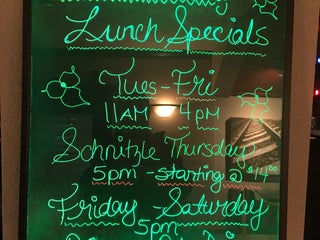 Lunch Specials
Tues-Fri
11AM 4PM
Schnitzle Thursday
5pm - starting @ $14.00
Friday - Saturday
5pm